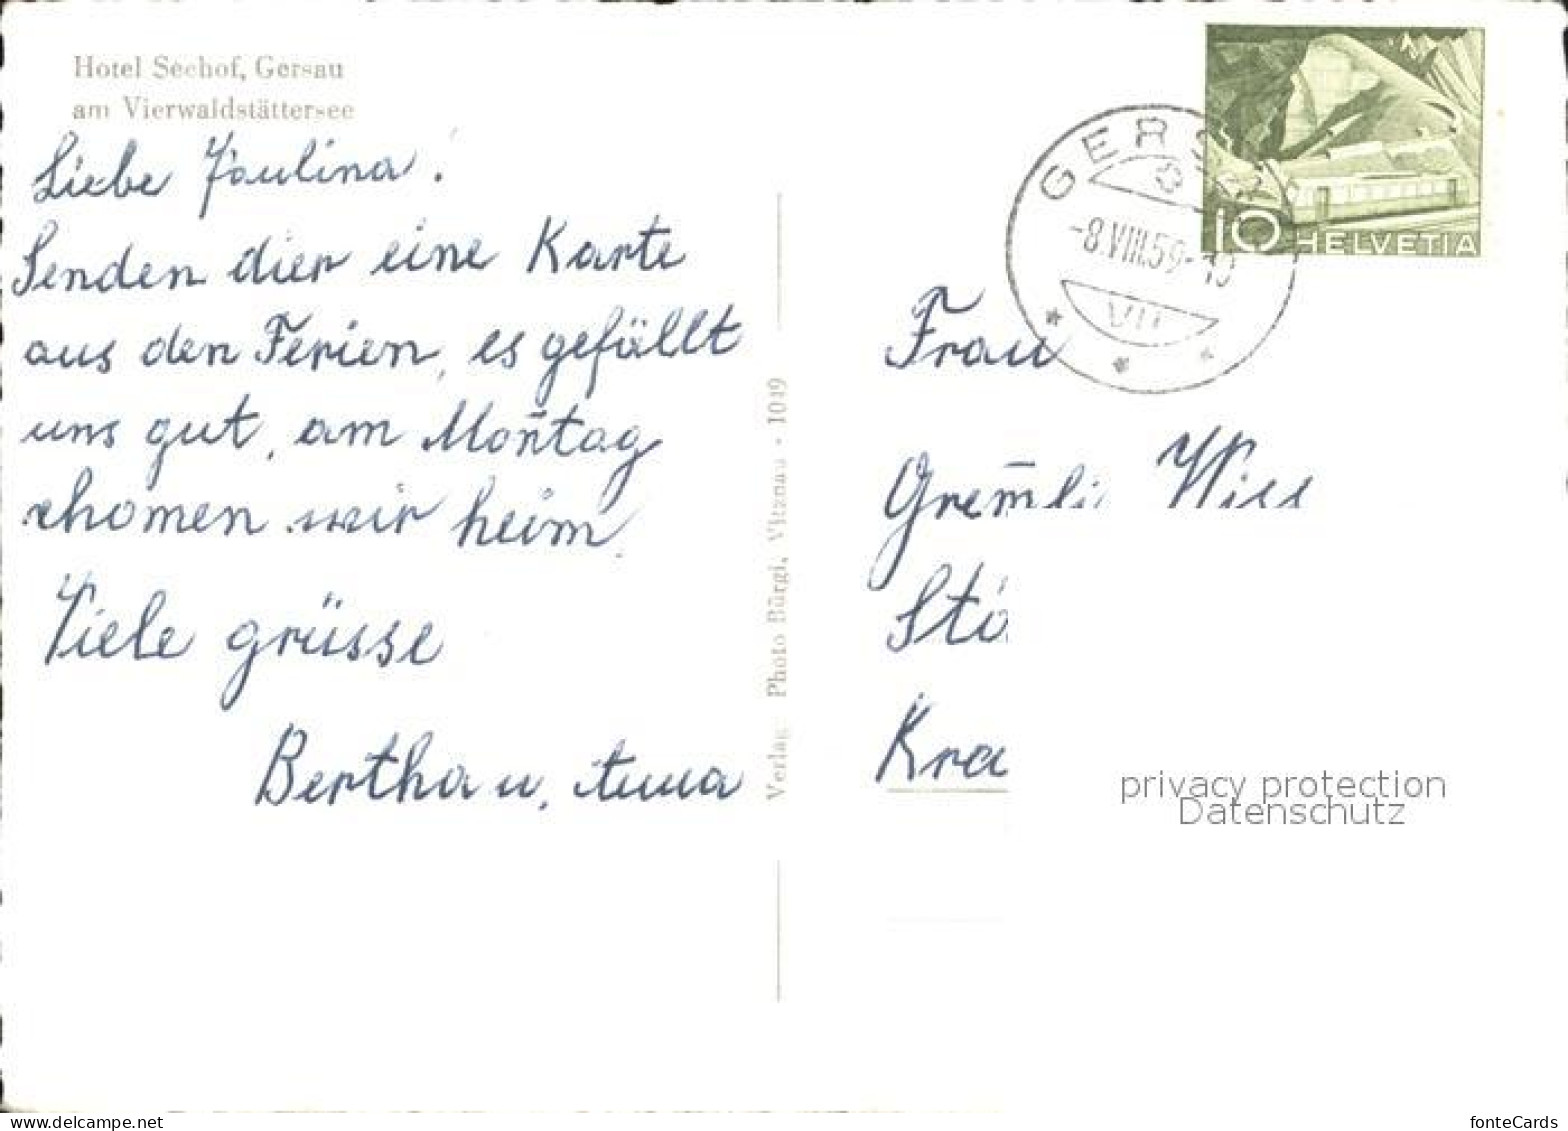 Hotel Seehof, Gersau
am Vierwaldstättersee
Liebe Paulina!
Senden dier eine Karte
aus den Ferien, es gefällt
uns gut, am Mon̄tag
chomen wir heim.
Viele grüsse
Bertha u. Anna
Verlag: Photo Bürgi, Vitznau - 1019
GERSAU
-8.VIII.59-
VII
10 HELVETIA
Frau
Grem̄li
Kra
privacy protection
Datenschutz
www.ansichtskartenversand.com
fonteCards